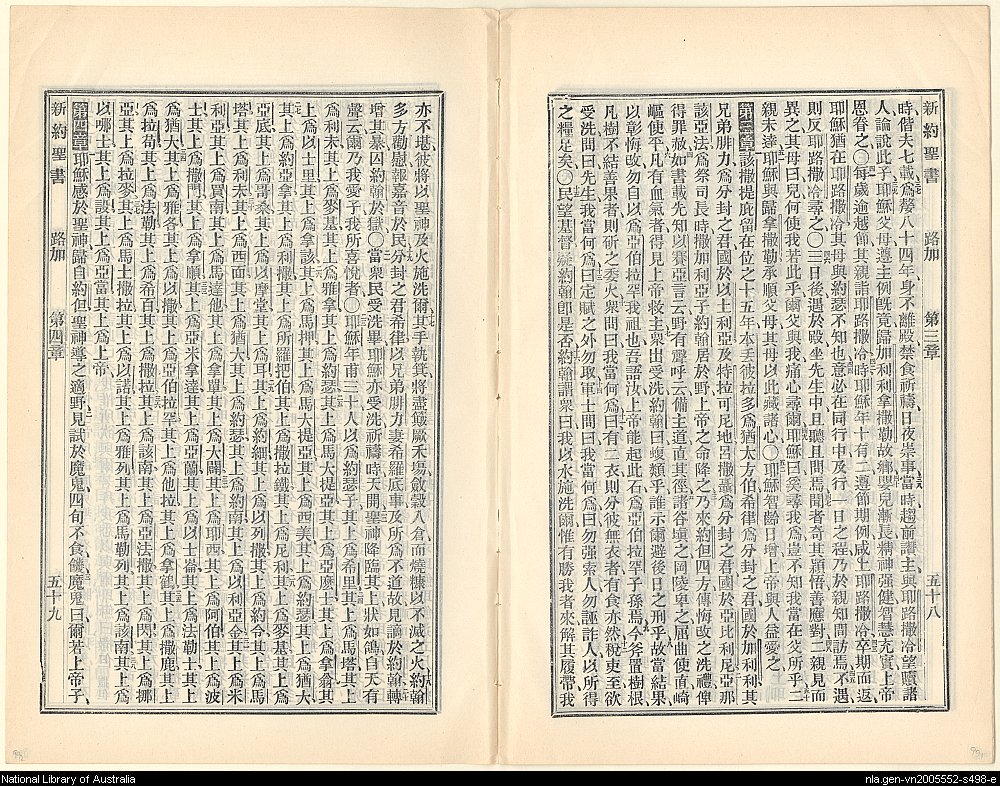 新約聖書 路加 第三章 五十八
時偕夫七載爲嫠八十四年身不離殿禁食祈禱日夜崇事當時趨前讚主與耶路撒冷望贖諸
人論說此子耶穌父母遵主例旣竟歸加利利拿撒勒故鄉嬰兒漸長精神强健智慧充實上帝
恩眷之○每歲逾越節其親詣耶路撒冷時耶穌年十有二遵節期例咸上耶路撒冷卒期而返
耶穌猶在耶路撒冷其母與約瑟不知也意必在同行中及行一日之程乃於親知間訪焉不遇
則反耶路撒冷尋之○三日後遇於殿坐先生中且聽且問焉聞者奇其穎悟善應對二親見而
異之其母曰兒何使我若此乎爾父與我痛心尋爾耶穌曰奚尋我爲豈不知我當在父所乎二
親未達耶穌與歸拿撒勒承順父母其母以此藏諸心○耶穌智齡日增上帝與人益愛之
第三章該撒提庇留在位之十五年本丟彼拉多爲猶太方伯希律爲分封之君國於加利利其
兄弟腓力爲分封之君國於以土利亞及特拉可尼地呂撒聶爲分封之君國於亞比利尼亞那
該亞法爲祭司長時撒加利亞子約翰居於野上帝之命降之乃來約但四方傳悔改之洗禮俾
得罪赦如書載先知以賽亞言云野有聲呼云備主道直其徑諸谷塡之岡陵卑之屈曲使直崎
嶇使平凡有血氣者得見上帝救主衆出受洗約翰曰蝮類乎誰示爾避後日之刑乎故當結果
以彰悔改勿自以爲亞伯拉罕我祖也吾語汝上帝能起此石爲亞伯拉罕子孫焉今斧置樹根
凡樹不結善果者則斫之委火衆問曰我當何爲曰有二衣則分彼無衣者有食亦然稅吏至欲
受洗問曰先生我當何爲曰定賦之外勿取軍士問曰我當何爲曰勿强索人勿誣詐人以所得
之糧足矣○民望基督疑約翰卽是否約翰謂衆曰我以水施洗爾惟有勝我者來解其履帶我
亦不堪彼將以聖神及火施洗爾其手執箕將盡簸厥禾塲斂穀入倉而燒糠以不滅之火約翰
多方勸慰報嘉音於民分封之君希律以兄弟腓力妻希羅底事及所爲不道故見謫於約翰轉
增其暴囚約翰於獄○當衆民受洗畢耶穌亦受洗祈禱時天開聖神降臨其上狀如鴿自天有
聲云爾乃我愛子我所喜悅者○耶穌年甫三十人以爲約瑟子其上爲希里其上爲馬塔其上
爲利未其上爲麥基其上爲雅拿其上爲約瑟其上爲馬大提亞其上爲亞麽士其上爲拿翁其
上爲以士里其上爲拿該其上爲馬押其上爲馬大提亞其上爲西美其上爲約瑟其上爲猶大
其上爲約亞拿其上爲利撒其上爲所羅把伯其上爲撒拉鐵其上爲尼利其上爲麥基其上爲
亞底其上爲哥桑其上爲以摩當其上爲耳其上爲約細其上爲以列撒其上爲約令其上爲馬
塔其上爲利未其上爲西面其上爲猶大其上爲約瑟其上爲約南其上爲以利亞金其上爲米
利亞其上爲買南其上爲馬達他其上爲拿單其上爲大闢其上爲耶西其上爲阿伯其上爲波
士其上爲撒門其上爲拿順其上爲亞米拿達其上爲亞蘭其上爲以士崙其上爲法勒士其上
爲猶大其上爲雅各其上爲以撒其上爲亞伯拉罕其上爲他拉其上爲拿鶴其上爲撒鹿其上
爲拉苟其上爲法勒其上爲希百其上爲撒拉其上爲該南其上爲亞法撒其上爲閃其上爲挪
亞其上爲拉麥其上爲馬土撒拉其上爲以諾其上爲雅列其上爲馬勒列其上爲該南其上爲
以哪士其上爲設其上爲亞當其上爲上帝
第四章耶穌感於聖神歸自約但聖神導之適野見試於魔鬼四旬不食饑魔鬼曰爾若上帝子
新約聖書 路加 第四章 五十九
National Library of Australia
nla.gen-vn2005552-s498-e